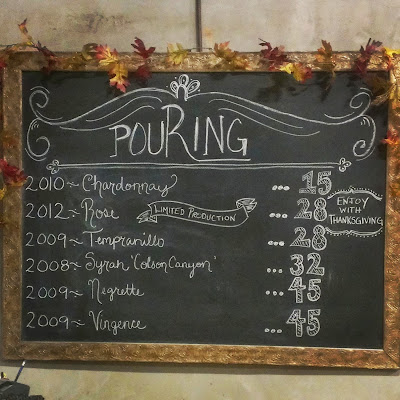 POURING
2010~ Chardonnay ... 15
2012~ Rose LIMITED PRODUCTION ... 28
ENJOY
WITH
THANKSGIVING
2009~ Tempranillo ... 28
2008~ Syrah 'Colson Canyon' ... 32
2009~ Negrette ... 45
2009~ Vingence ... 45